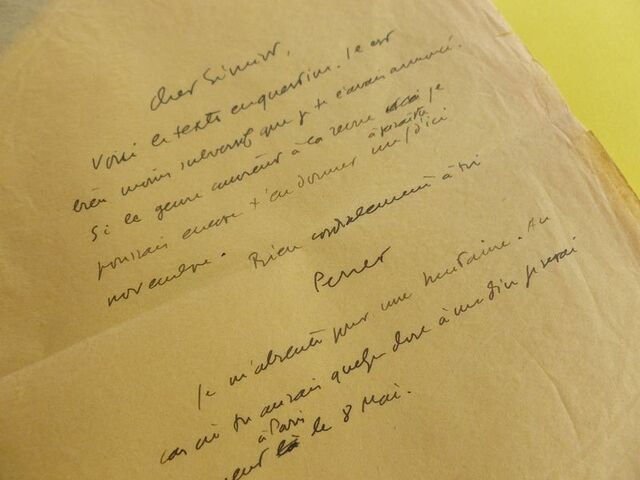 Cher
Voici le texte en question. Il est
bien moins subversif que je te l'avais annoncé.
Si le genre convient à la revue je
pourrais encore t'en donner un à paraître d'ici
novembre. Bien cordialement à toi
Perret
Je m'absente pour une huitaine. Au
cas où tu aurais quelque chose à me dire je serai
à Paris
le 8 Mai.